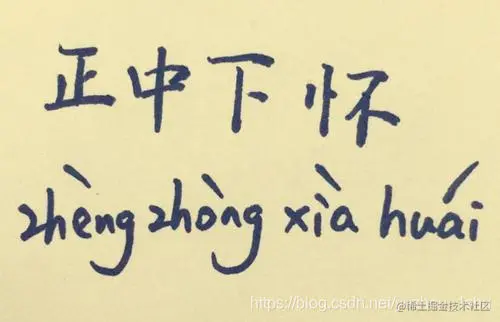 正中下怀
zhèng zhòng xià huái
@稀土掘金技术社区